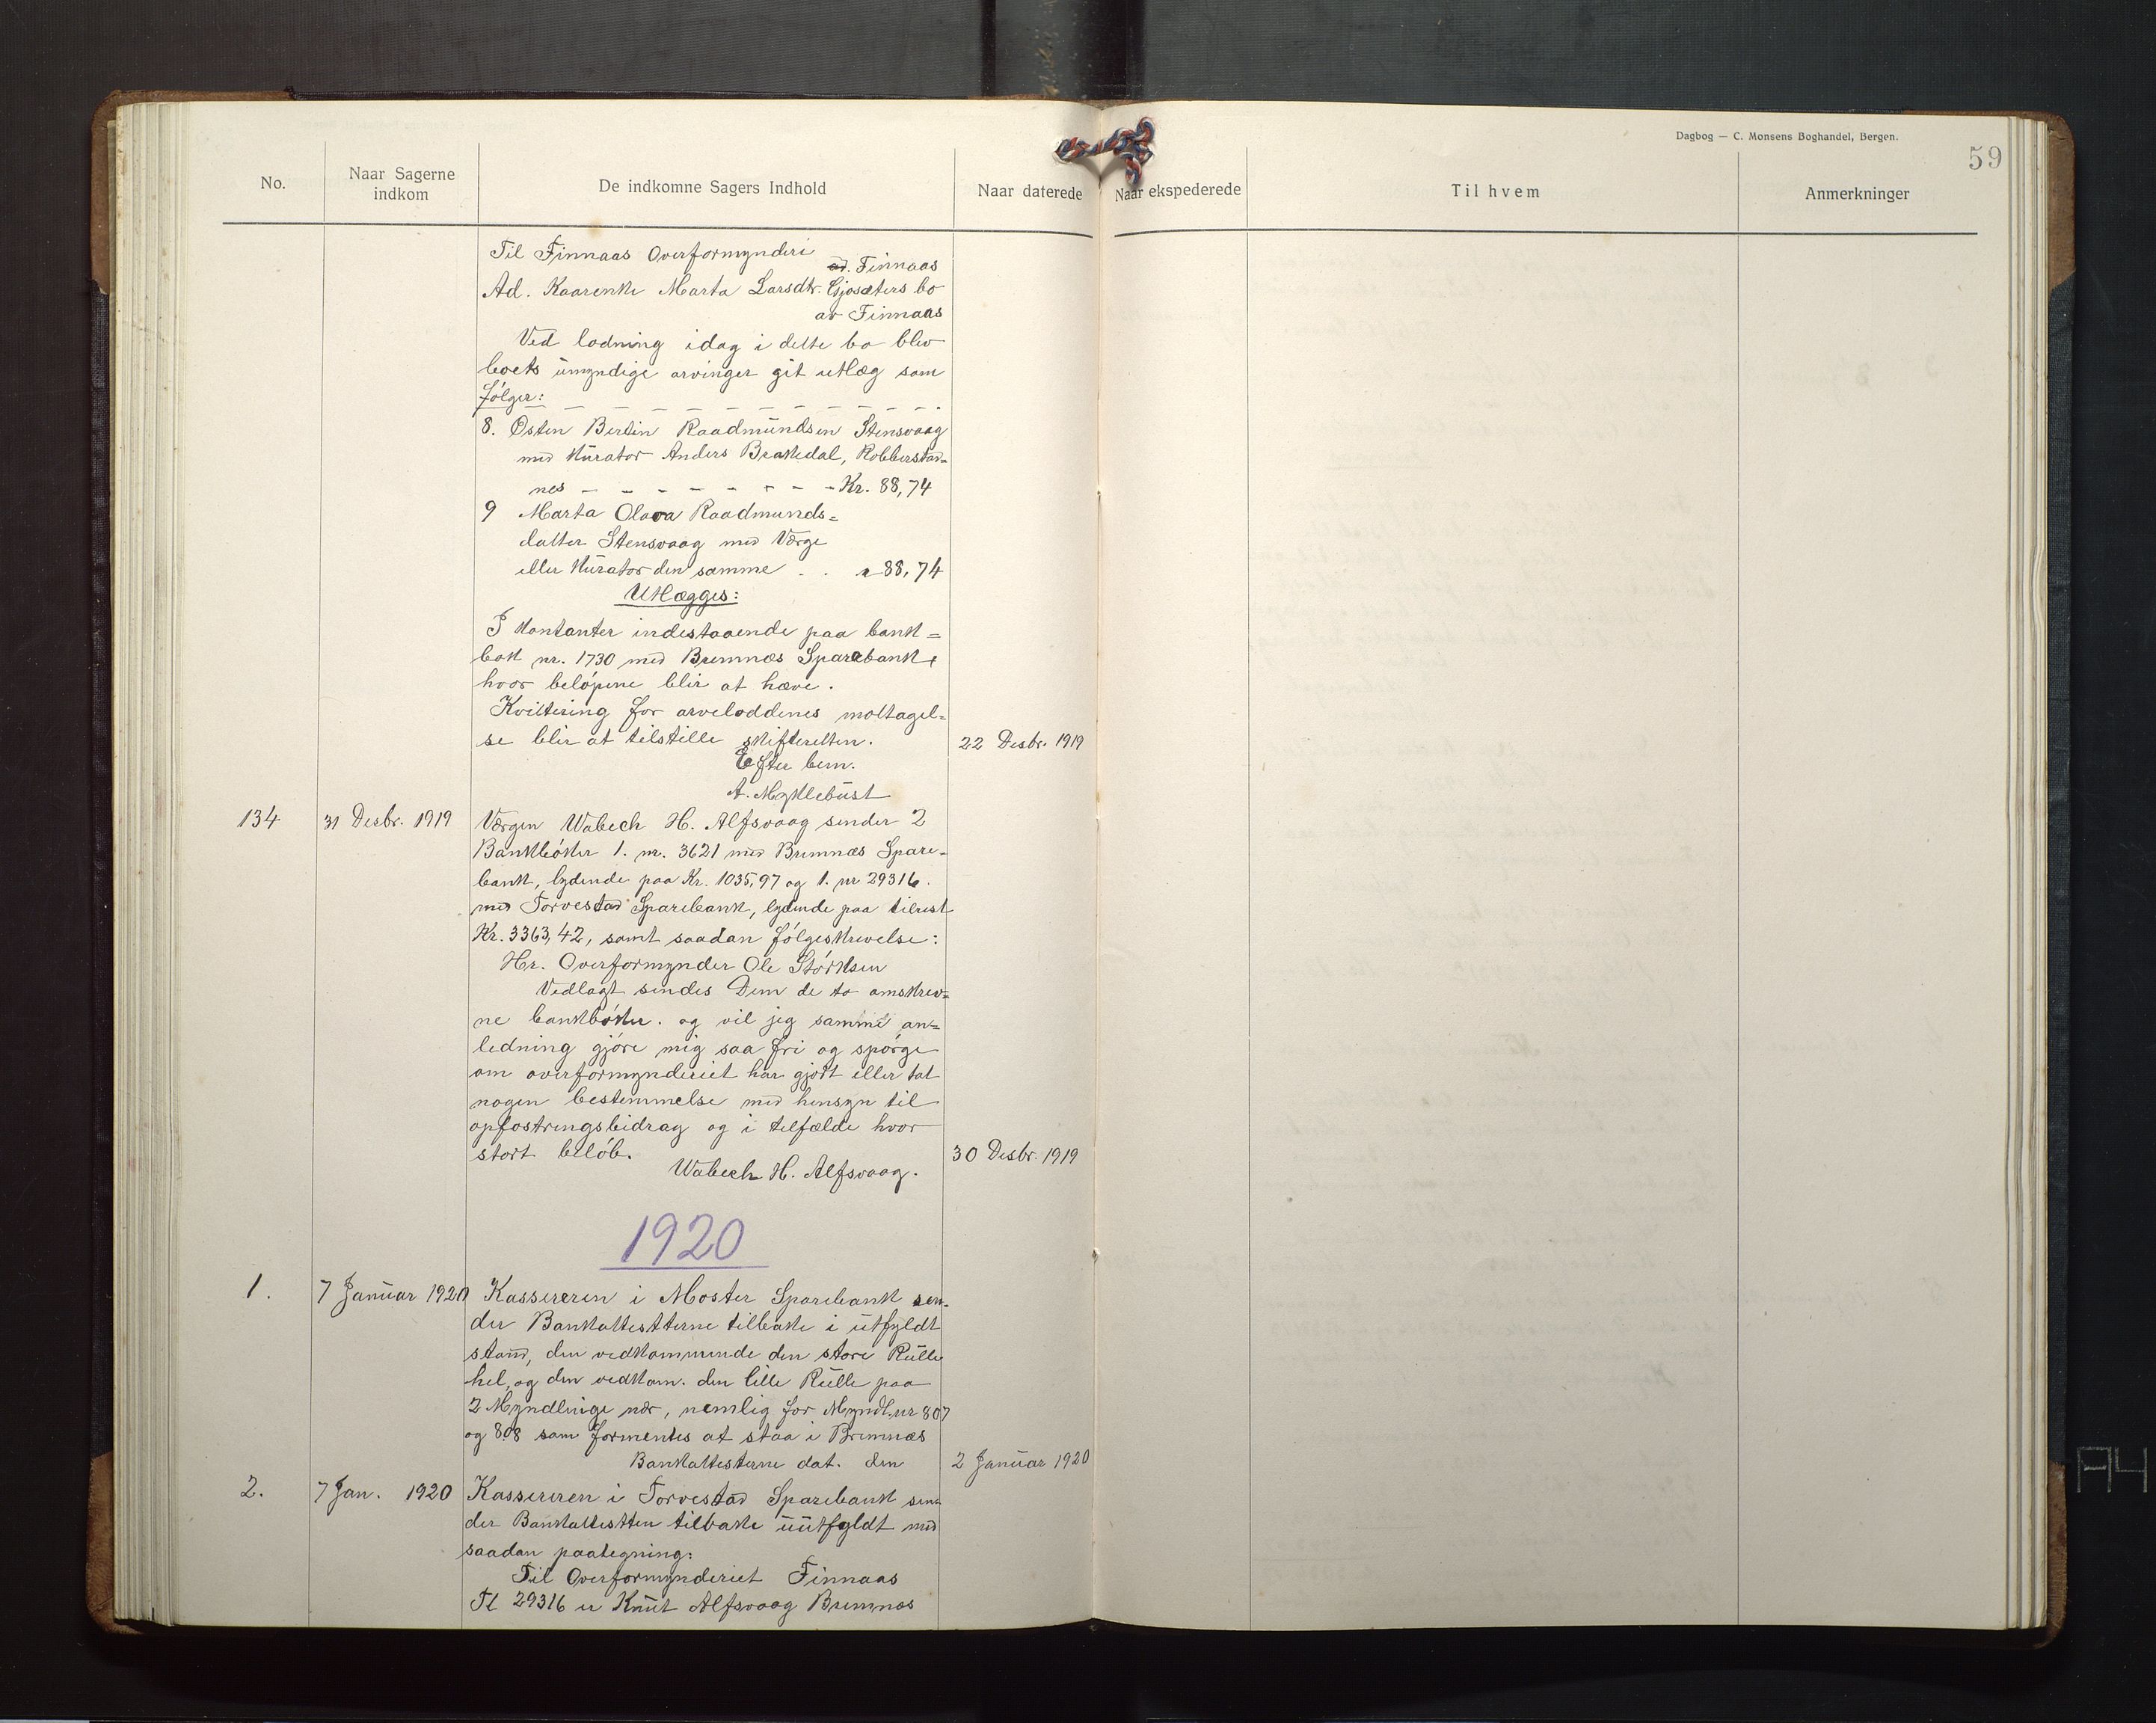 Dagbog — C. Monsens Boghandel, Bergen.
59
No.
Naar Sagerne
indkom
De indkomne Sagers Indhold
Naar daterede
Naar ekspederede
Til hvem
Anmerkninger
Til Finnaas Overformynderi
ad. Finnaas
Ad. Kaarenke Marta Larsdtr. Gjosæters bo
av Finnaas
Ved lodning idag i dette bo blev
boets umyndige arvinger git utlæg som
følger:
8. Østen Bertin Raadmundsen Stensvaag
med Kurator Anders Brakedal, Robberstad=
nes - - - - - - - - Kr. 88,74
9 Marta Olava Raadmunds=
datter Stensvaag med Værge
eller Kurator den samme . . " 88,74
Utlægges:
I Kontanter indestaaende paa bank=
bok nr. 1730 med Bremnæs Sparebank,
hvor beløpene blir at hæve.
Kvittering for arveloddenes mottagel=
se blir at tilstille skifteretten.
22 Desbr. 1919
Efter bem.
A. Myklebust
134
31 Desbr. 1919
Værgen Wabech H. Alfsvaag sender 2
Bankbøker 1. nr. 3621 med Bremnæs Spare-
bank, lydende paa Kr. 1035,97 og 1. nr 29316.
med Torvestad Sparebank, lydende paa tilrest
Kr. 3363,42, samt saadan følgeskrivelse:
Hr. Overformynder Ole Størksen
Vedlagt sendes Dem de to omskrev=
ne bankbøker. og vil jeg samme an=
ledning gjøre mig saa fri og spørge
om overformynderiet har gjort eller tat
nogen bestemmelse med hensyn til
opfostringsbidrag og i tilfælde hvor
stort beløb.
30 Desbr. 1919
Wabech H. Alfsvaag.
1920
1.
7 Januar 1920
Kassereren i Moster Sparebank sen-
der Bankattesterne tilbake i utfyldt
stand, den vedkommende den store Rulle
hel, og den vedkom. den lille Rulle paa
2 Myndlinge nær, nemlig for Myndl. nr 807
og 808 som formentes at staa i Bremnæs
Bankattesterne dat. den
2 Januar 1920
2.
7 Jan. 1920
Kassereren i Torvestad Sparebank sen-
der Bankattesten tilbake uutfyldt med
saadan paategning:
Til Overformynderiet Finnaas
Fl 29316 er Knut Alfsvaag Bremnæs